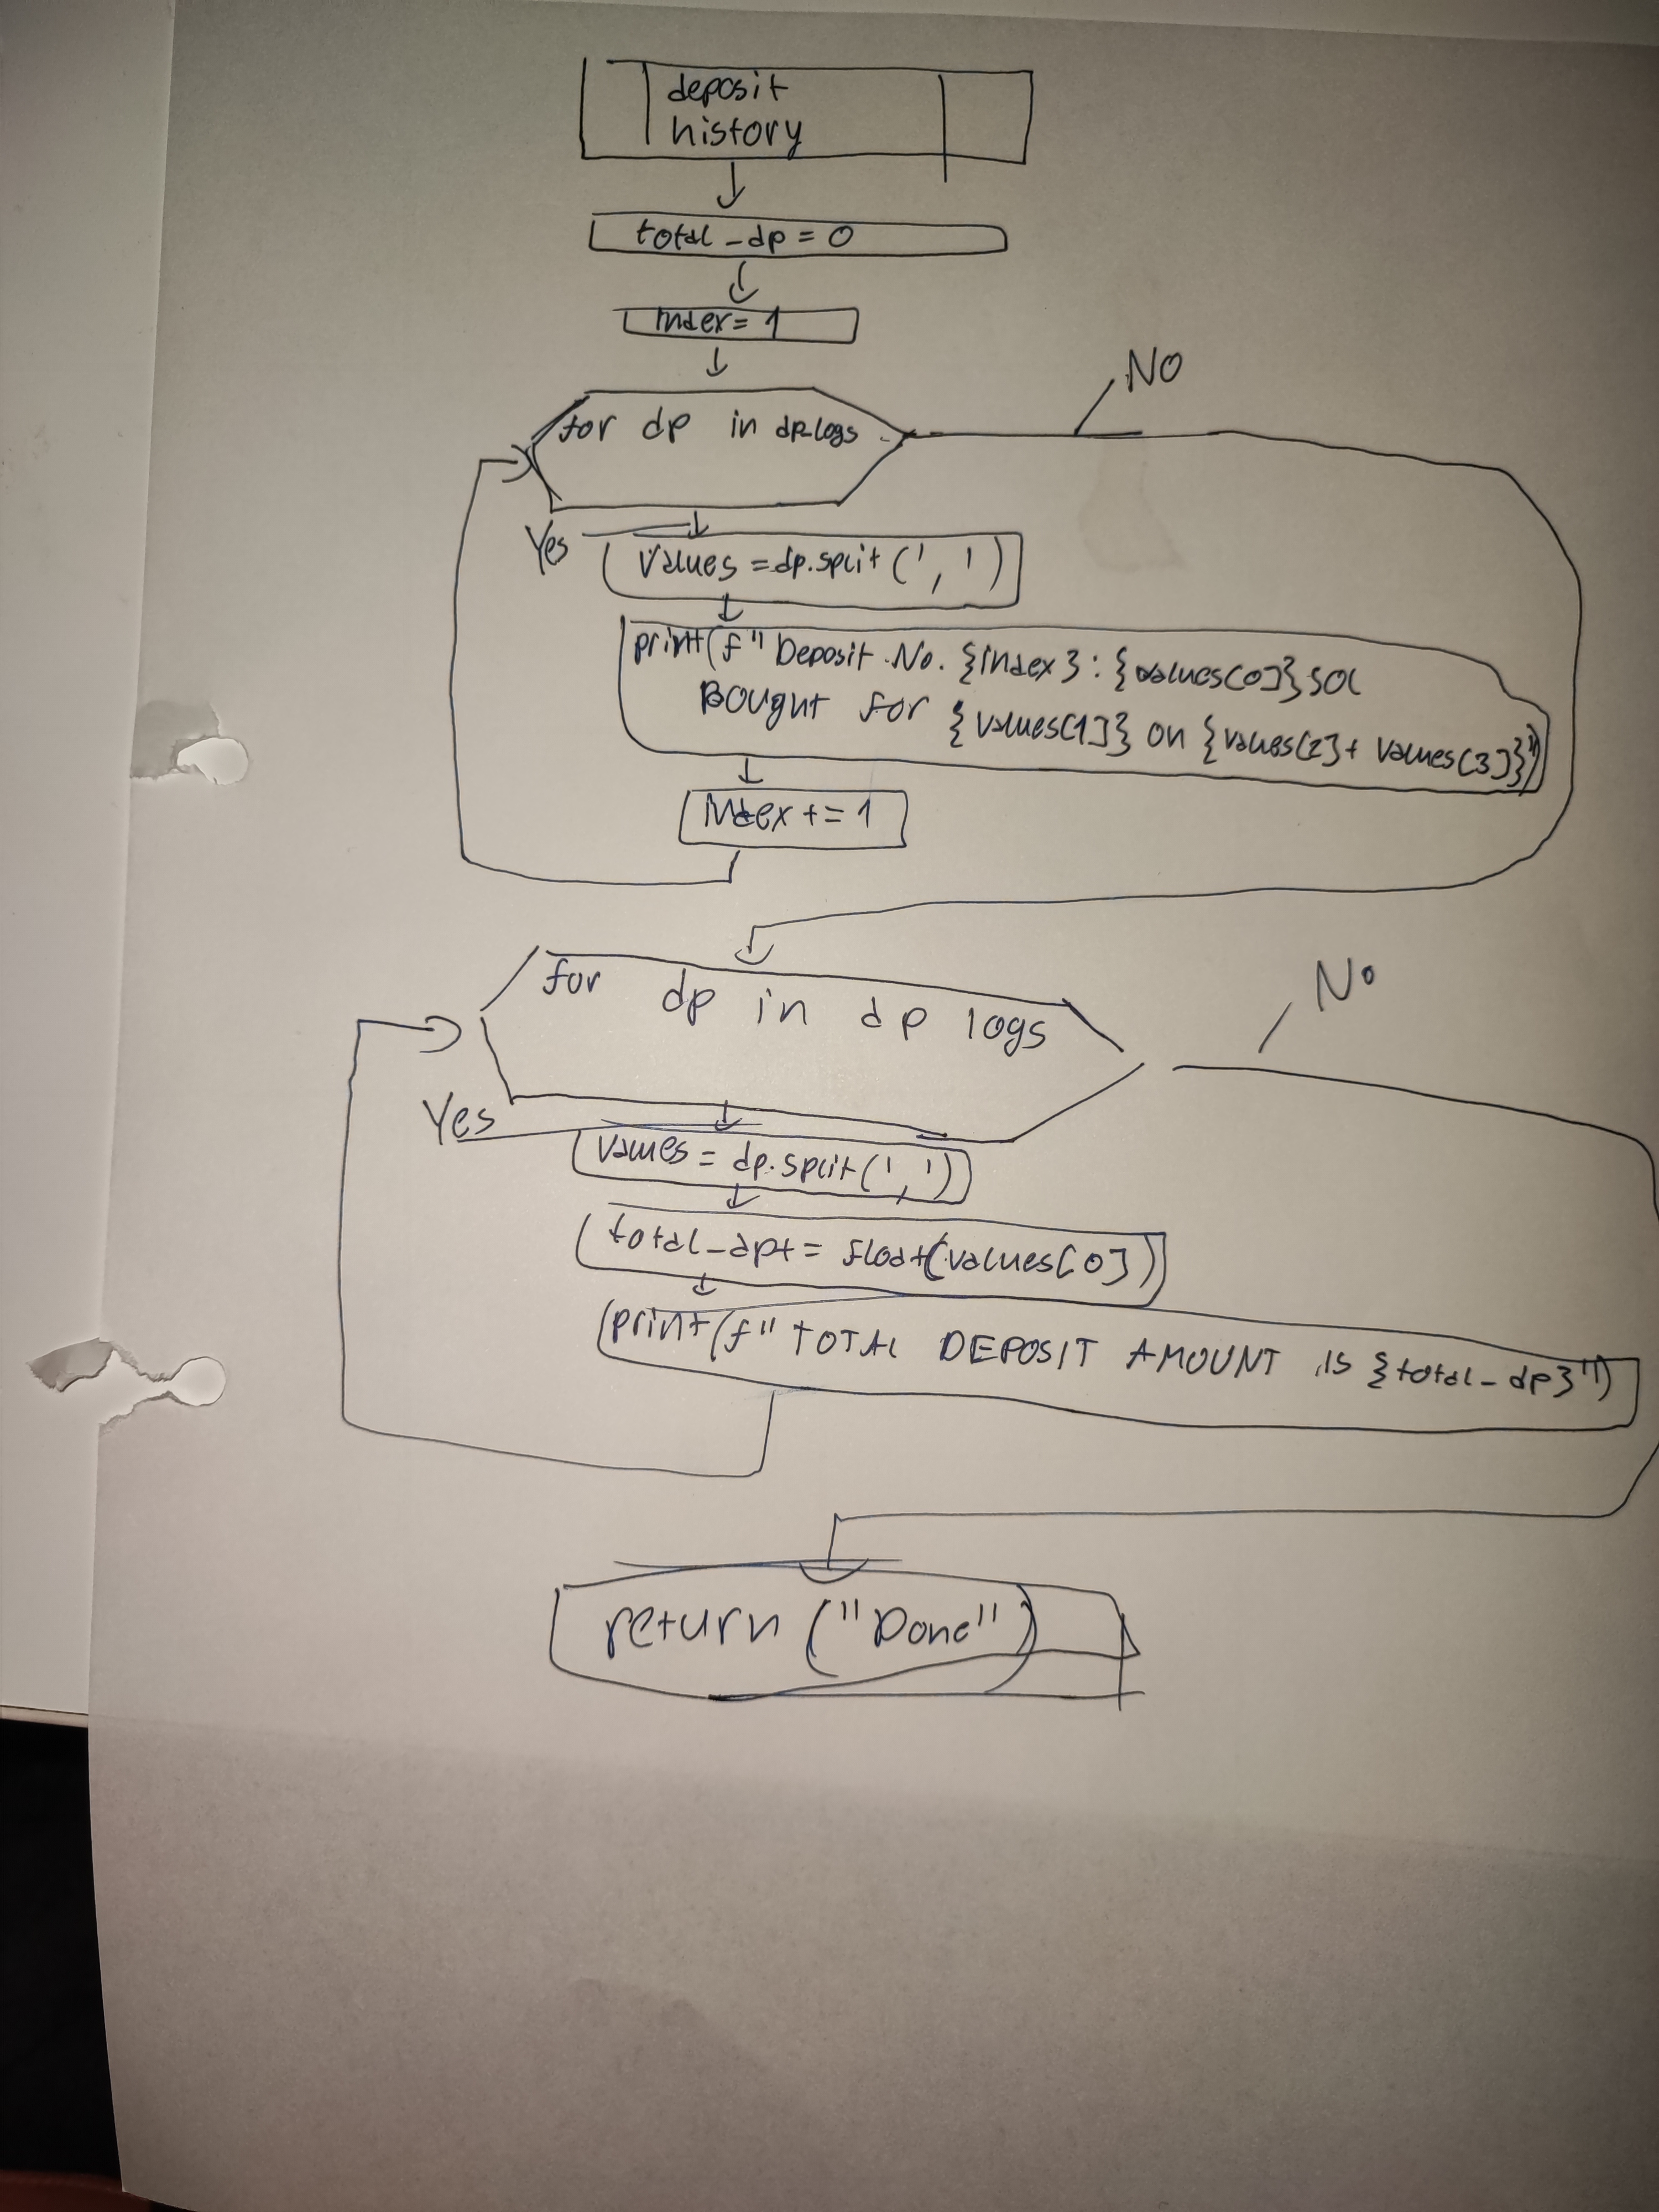 deposit
history
total_dp = 0
index = 1
NO
for dp in dp_logs
Yes
values = dp.split(',')
print(f"Deposit No. {index}: {values[0]} SOL
Bought for {values[1]} on {values[2] + values[3]}")
index += 1
No
for dp in dp logs
Yes
values = dp.split(',')
total_dp += float(values[0])
print(f"TOTAL DEPOSIT AMOUNT is {total_dp}")
return ("Done")